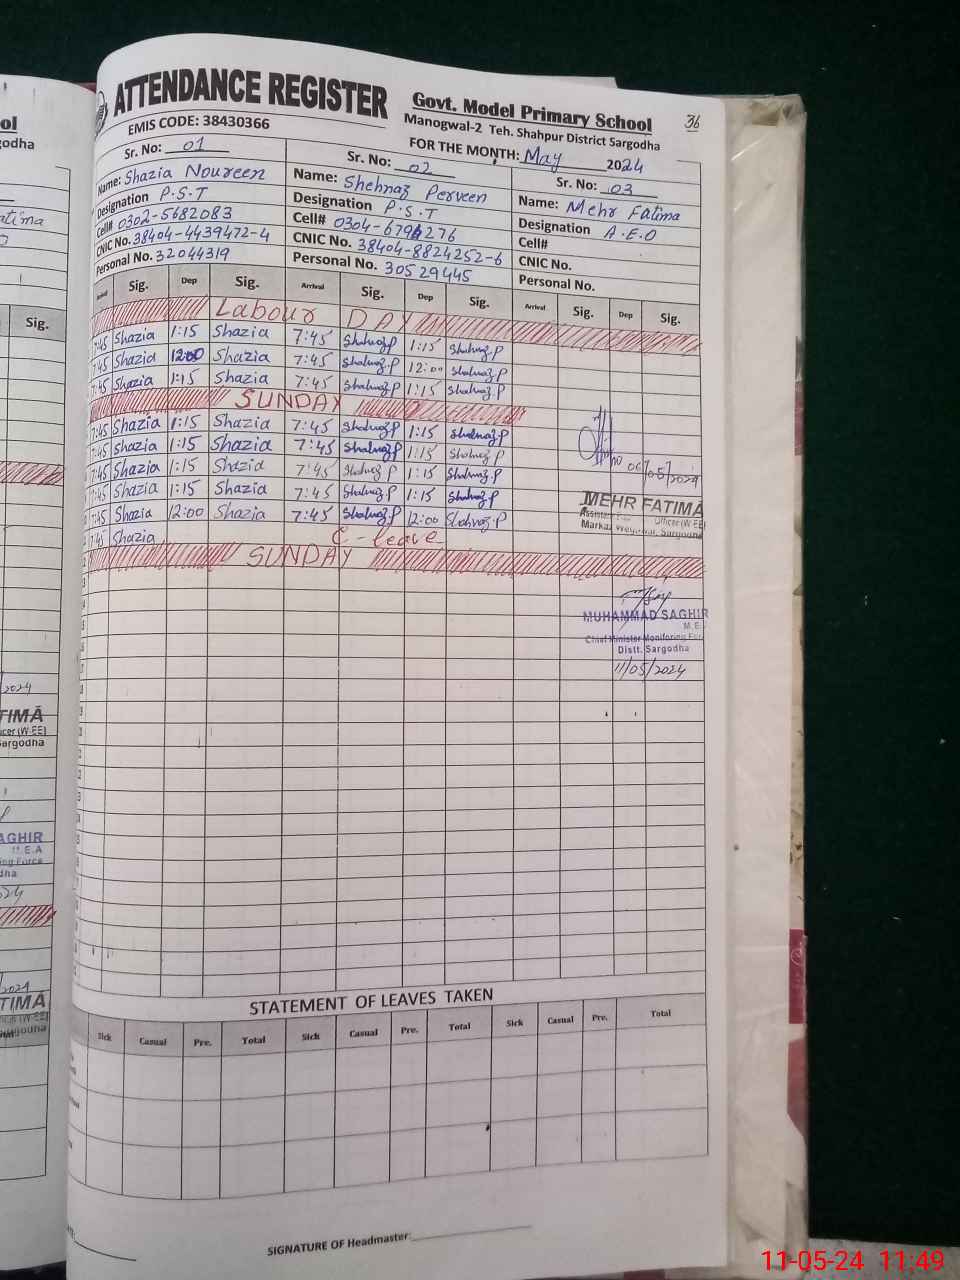 ATTENDANCE REGISTER
Govt. Model Primary School
36
EMIS CODE: 38430366
Manogwal-2 Teh. Shahpur District Sargodha
FOR THE MONTH: May 2024
Sr. No: 01
Name: Shazia Noureen
Designation P.S.T
Cell# 0302-5682083
CNIC No. 38404-4439472-4
Personal No. 32044319
Sr. No: 02
Name: Shehnaz Perveen
Designation P.S.T
Cell# 0304-6794276
CNIC No. 38404-8824252-6
Personal No. 30529445
Sr. No: 03
Name: Mehr Fatima
Designation A.E.O
Cell#
CNIC No.
Personal No.
Sig. Dep Sig. Arrival Sig. Dep Sig. Arrival Sig. Dep Sig.
Labour DAY
7:45 Shazia 1:15 Shazia 7:45 Shahnaz.P 1:15 Shahnaz.P
7:45 Shazia 12:00 Shazia 7:45 Shahnaz.P 12:00 Shahnaz.P
7:45 Shazia 1:15 Shazia 7:45 Shahnaz.P 1:15 Shahnaz.P
SUNDAY
7:45 Shazia 1:15 Shazia 7:45 Shahnaz.P 1:15 Shahnaz.P
7:45 Shazia 1:15 Shazia 7:45 Shahnaz.P 1:15 Shahnaz.P
7:45 Shazia 1:15 Shazia 7:45 Shahnaz.P 1:15 Shahnaz.P
7:45 Shazia 1:15 Shazia 7:45 Shahnaz.P 1:15 Shahnaz.P
7:45 Shazia 12:00 Shazia 7:45 Shahnaz.P 12:00 Shahnaz.P
7:45 Shazia C-leave
SUNDAY
06/05/2024
MEHR FATIMA
Officer (W-EE)
Sargodha
MUHAMMAD SAGHIR
M.E.
Chief Minister Monitoring For
Distt. Sargodha
11/05/2024
STATEMENT OF LEAVES TAKEN
Sick Casual Pre. Total Sick Casual Pre. Total Sick Casual Pre. Total
SIGNATURE OF Headmaster:
ol
odha
atima
Sig.
2024
TIMA
cer (W-EE)
argodha
AGHIR
M.E.A
ing Force
dha
2024
TIMA
11-05-24 11:49